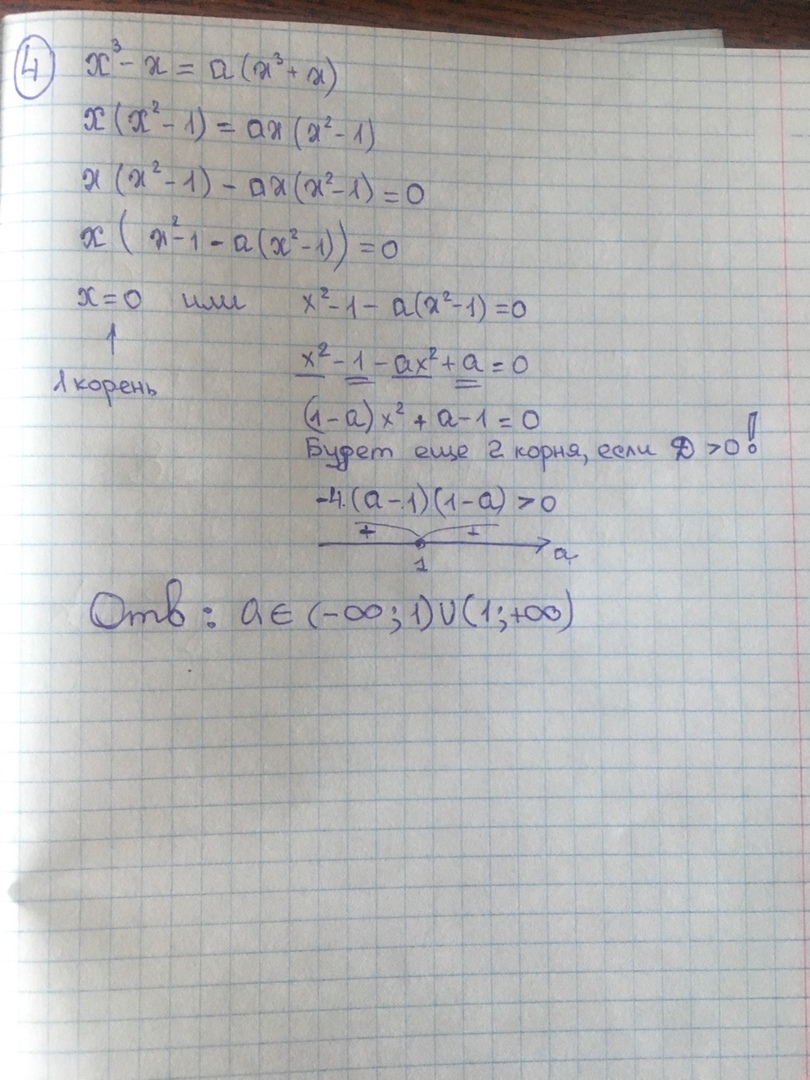 4 x³ - x = a(x³ + x)
x(x² - 1) = ax(x² - 1)
x(x² - 1) - ax(x² - 1) = 0
x(x² - 1 - a(x² - 1)) = 0
x = 0 или x² - 1 - a(x² - 1) = 0
↑
1 корень
x² - 1 - ax² + a = 0
(1 - a)x² + a - 1 = 0
Будет еще 2 корня, если D > 0!
-4·(a - 1)(1 - a) > 0
+ +
1 a
Отв: a ∈ (-∞; 1) ∪ (1; +∞)